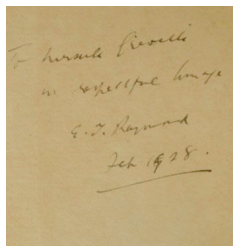 To Ursula Greville
in respectful homage
E. T. Raymond
Feb 1928.